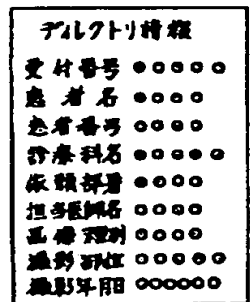 ディレクトリ情報
受付番号 ●○○○○
患者名 ●○○○
患者番号 ○○○○
診療科名 ●○○●○
依頼部署 ●○○○
担当医師名 ○○○○
画像種別 ○○○○
撮影部位 ○○○○○
撮影年月日 ○○○○○○